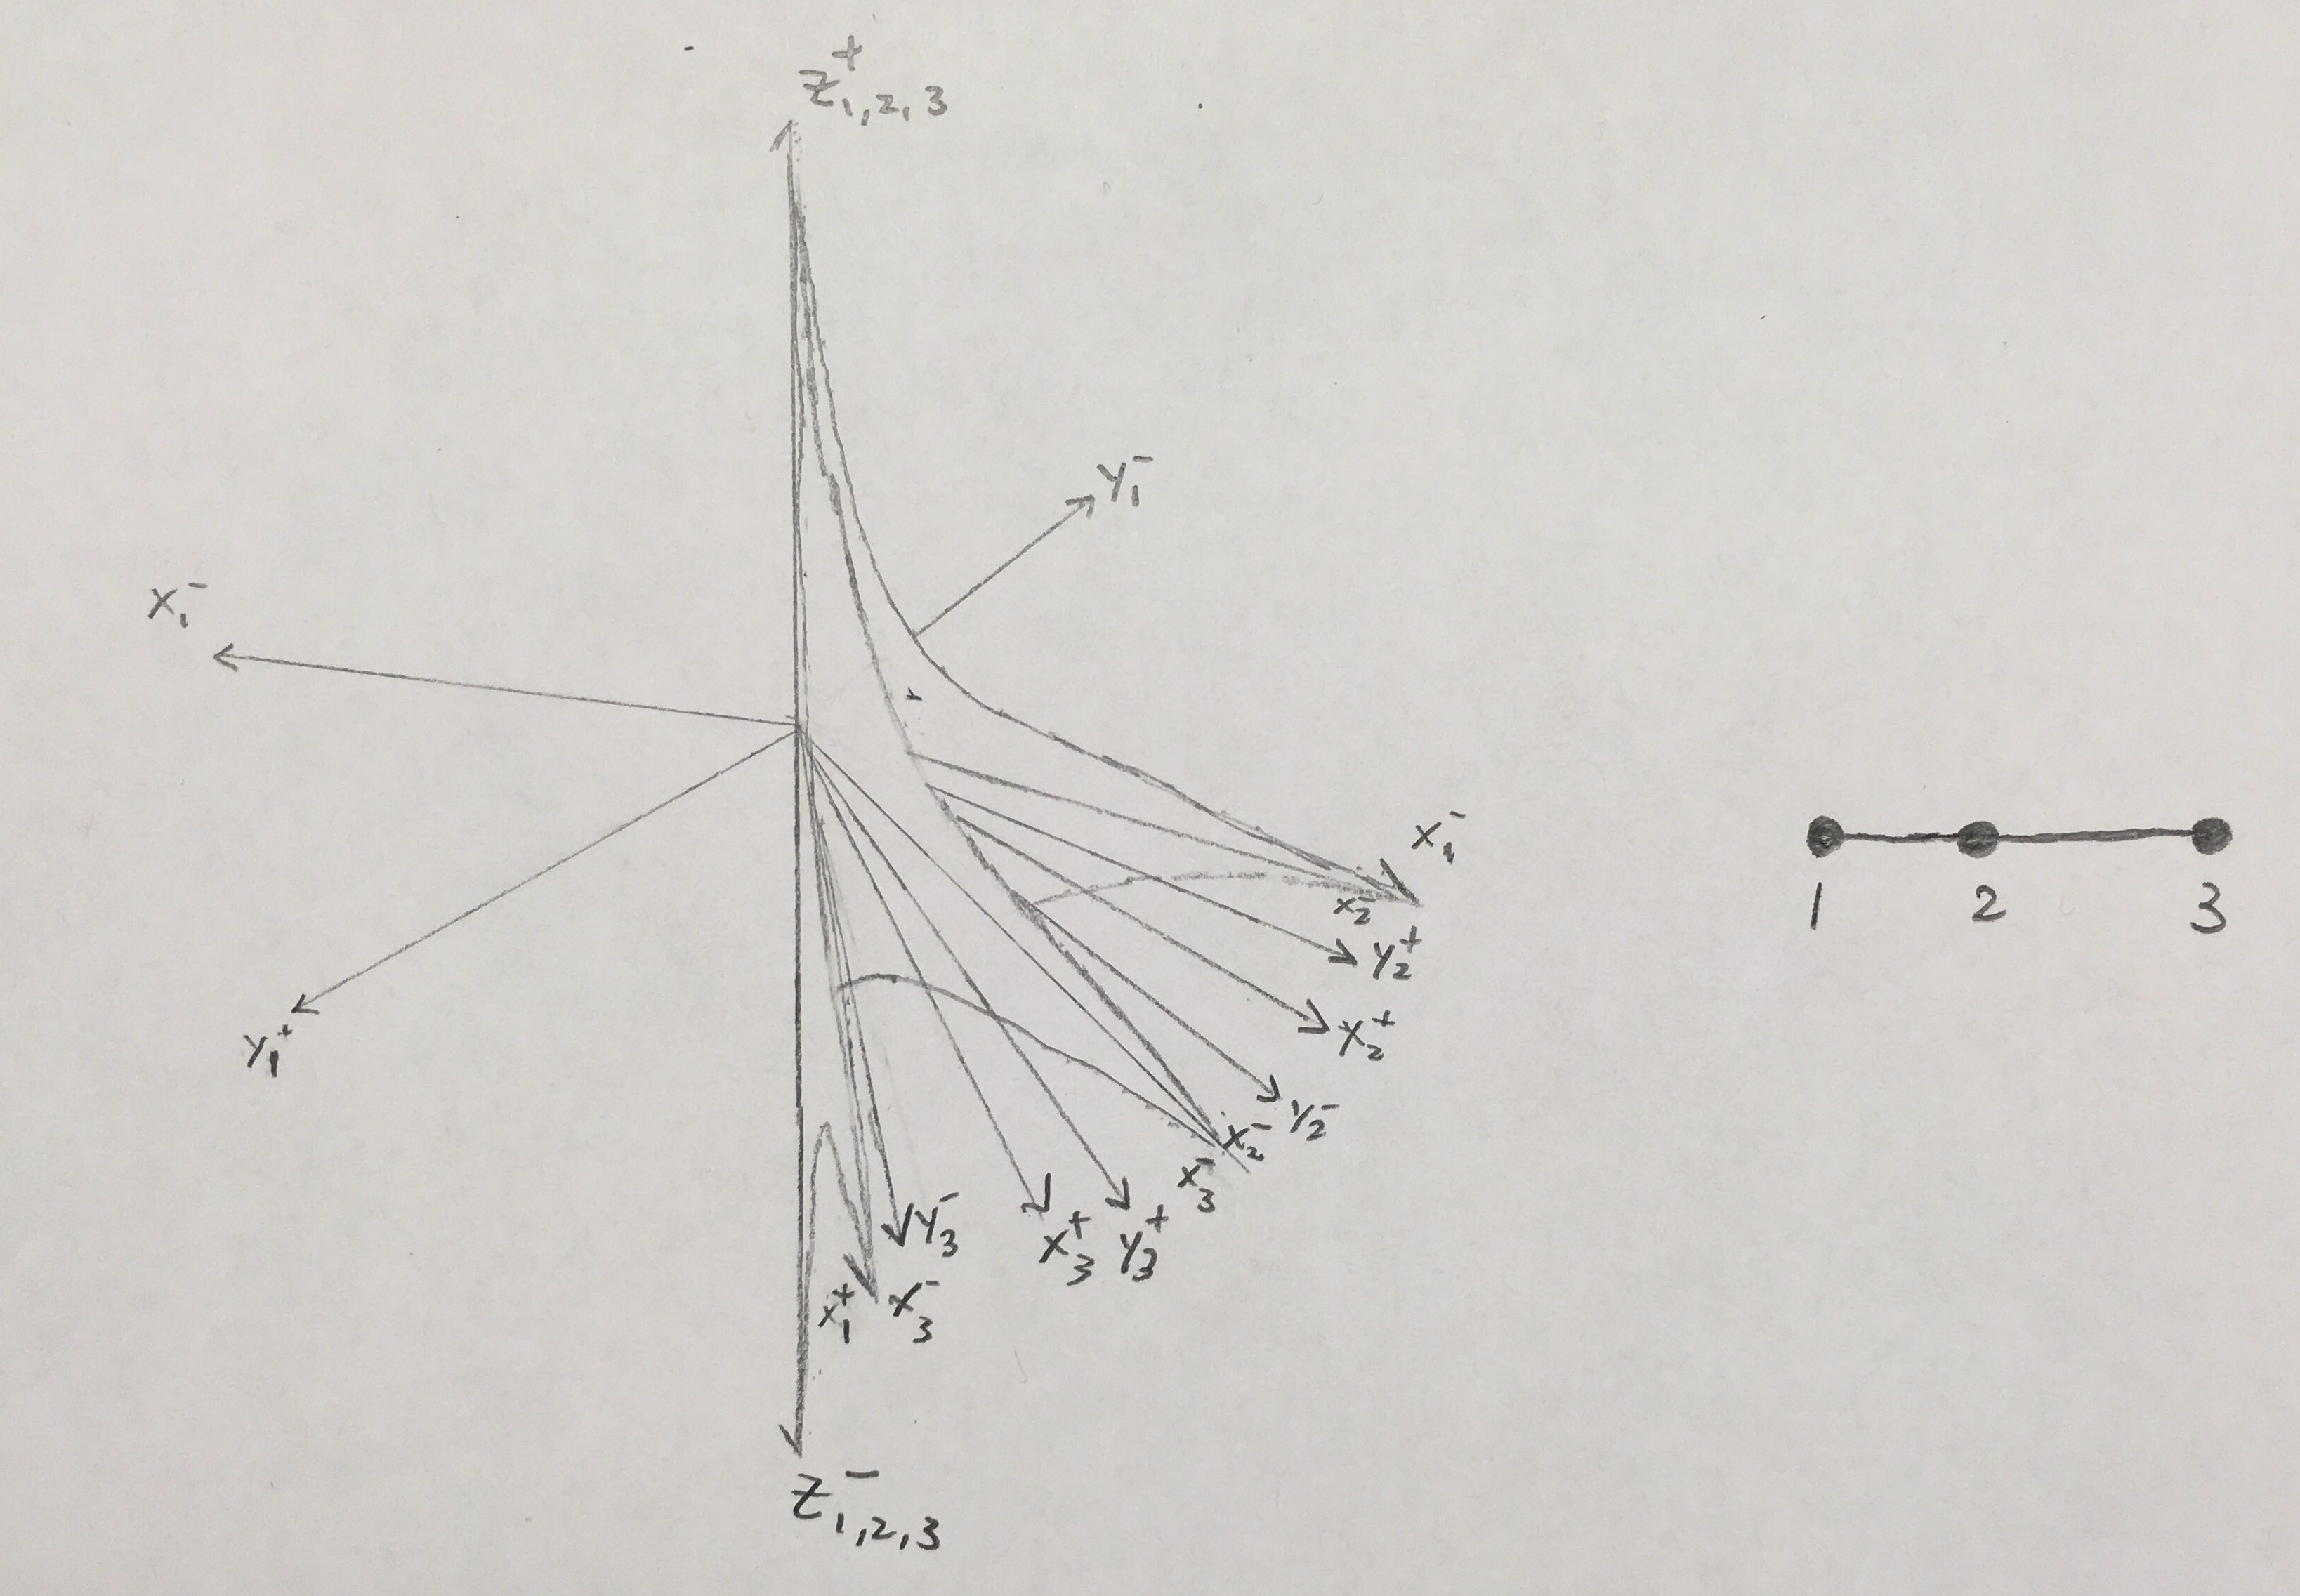 Z⁺₁,₂,₃
Y₁⁻
X₁⁻
X₁⁻
X₂⁻
Y₂⁺
1 2 3
X₂⁺
Y₁⁺
Y₂⁻
X₂⁻
X₃⁻
Y₃⁻
X₃⁺ Y₃⁺
X₁⁺ X₃⁻
Z⁻₁,₂,₃